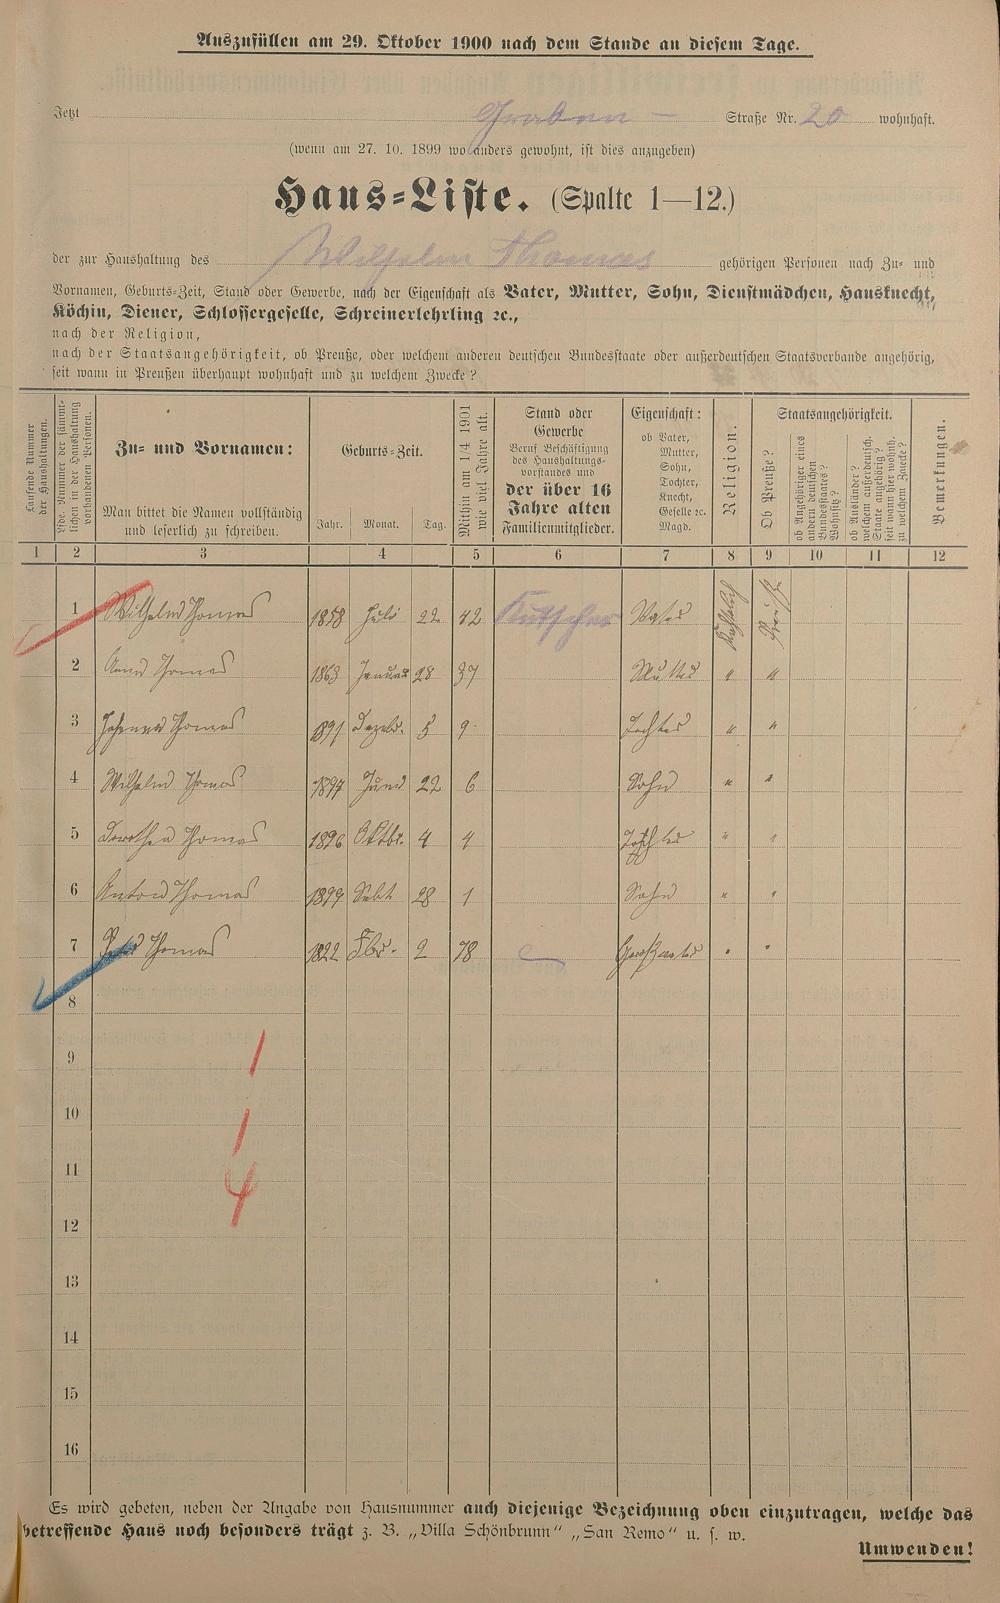 Auszufüllen am 29. Oktober 1900 nach dem Stande an diesem Tage.
Jetzt Graben – Straße Nr. 20 wohnhaft.
(wenn am 27. 10. 1899 wo anders gewohnt, ist dies anzugeben)
Haus-Liste. (Spalte 1—12.)
der zur Haushaltung des Wilhelm Thomas gehörigen Personen nach Zu- und
Vornamen, Geburts-Zeit, Stand oder Gewerbe, nach der Eigenschaft als Vater, Mutter, Sohn, Dienstmädchen, Hausknecht,
Köchin, Diener, Schlossergeselle, Schreinerlehrling ꝛc.,
nach der Religion,
nach der Staatsangehörigkeit, ob Preuße, oder welchem anderen deutschen Bundesstaate oder außerdeutschen Staatsverbande angehörig,
seit wann in Preußen überhaupt wohnhaft und zu welchem Zwecke?
Laufende Nummer
der Haushaltungen.
Lfde. Nummer der sämmt-
lichen in der Haushaltung
vorhandenen Personen.
Zu- und Vornamen:
Man bittet die Namen vollständig
und leserlich zu schreiben.
Geburts-Zeit.
Jahr. Monat. Tag.
Mithin am 1/4 1901
wie viel Jahre alt.
Stand oder
Gewerbe
Beruf Beschäftigung
des Haushaltungs-
vorstandes und
der über 16
Jahre alten
Familienmitglieder.
Eigenschaft:
ob Vater,
Mutter,
Sohn,
Tochter,
Knecht,
Geselle ꝛc.
Magd.
Religion.
Staatsangehörigkeit.
Ob Preuße?
ob Angehöriger eines
andern deutschen
Bundesstaates?
Wohnsitz?
ob Ausländer?
welchem außerdeutsch.
Staate angehörig?
seit wann hier wohnh.
zu welchem Zwecke?
Bemerkungen.
1 2 3 4 5 6 7 8 9 10 11 12
1 Wilhelm Thomas 1858 Juli 22 42 Kutscher Vater Katholisch Preuße
2 Anna Thomas 1863 Januar 28 37 Mutter " "
3 Johanna Thomas 1891 Dezebr. 5 9 Tochter " "
4 Wilhelm Thomas 1894 Juni 22 6 Sohn " "
5 Dorothea Thomas 1896 Oktbr. 4 4 Tochter " "
6 Anton Thomas 1899 Sebt 28 1 Sohn " "
7 Thomas 1822 Fbr. 2 78 Großvater " "
8
9 1
10 1
11 4
12
13
14
15
16
Es wird gebeten, neben der Angabe von Hausnummer auch diejenige Bezeichnung oben einzutragen, welche das
betreffende Haus noch besonders trägt z. B. „Villa Schönbrunn“ „San Remo“ u. s. w.
Umwenden!